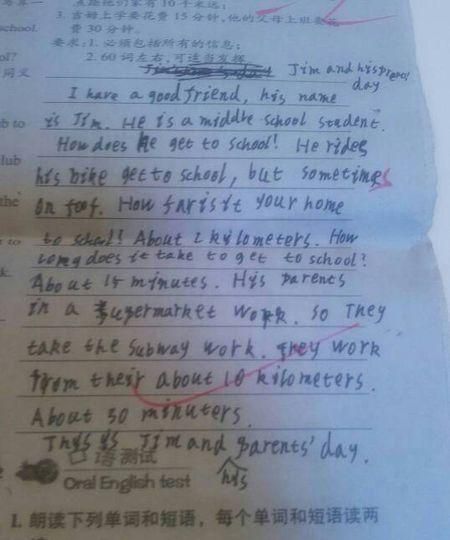 点距他们家有10千米远;
3. 吉姆上学要花费15分钟,他的父母上班要花
school.
费30分钟。
要求:1. 必须包括所有的信息;
ol?
2. 60词左右,可适当发挥。
同义
Jim and his parents'
day
I have a good friend, his name
b to
is Jim. He is a middle school student.
How does he get to school! He rides
lub
his bike get to school, but sometimes
the
on foot. How far is it your home
to
to school! About 2 kilometers. How
long does it take to get to school?
k.
About 15 minutes. His parents
in a supermarket work. so They
take the subway work. they work
from their about 10 kilometers.
About 30 minuters.
This is Jim and parents' day.
his
口语测试
Oral English test
1. 朗读下列单词和短语,每个单词和短语读两